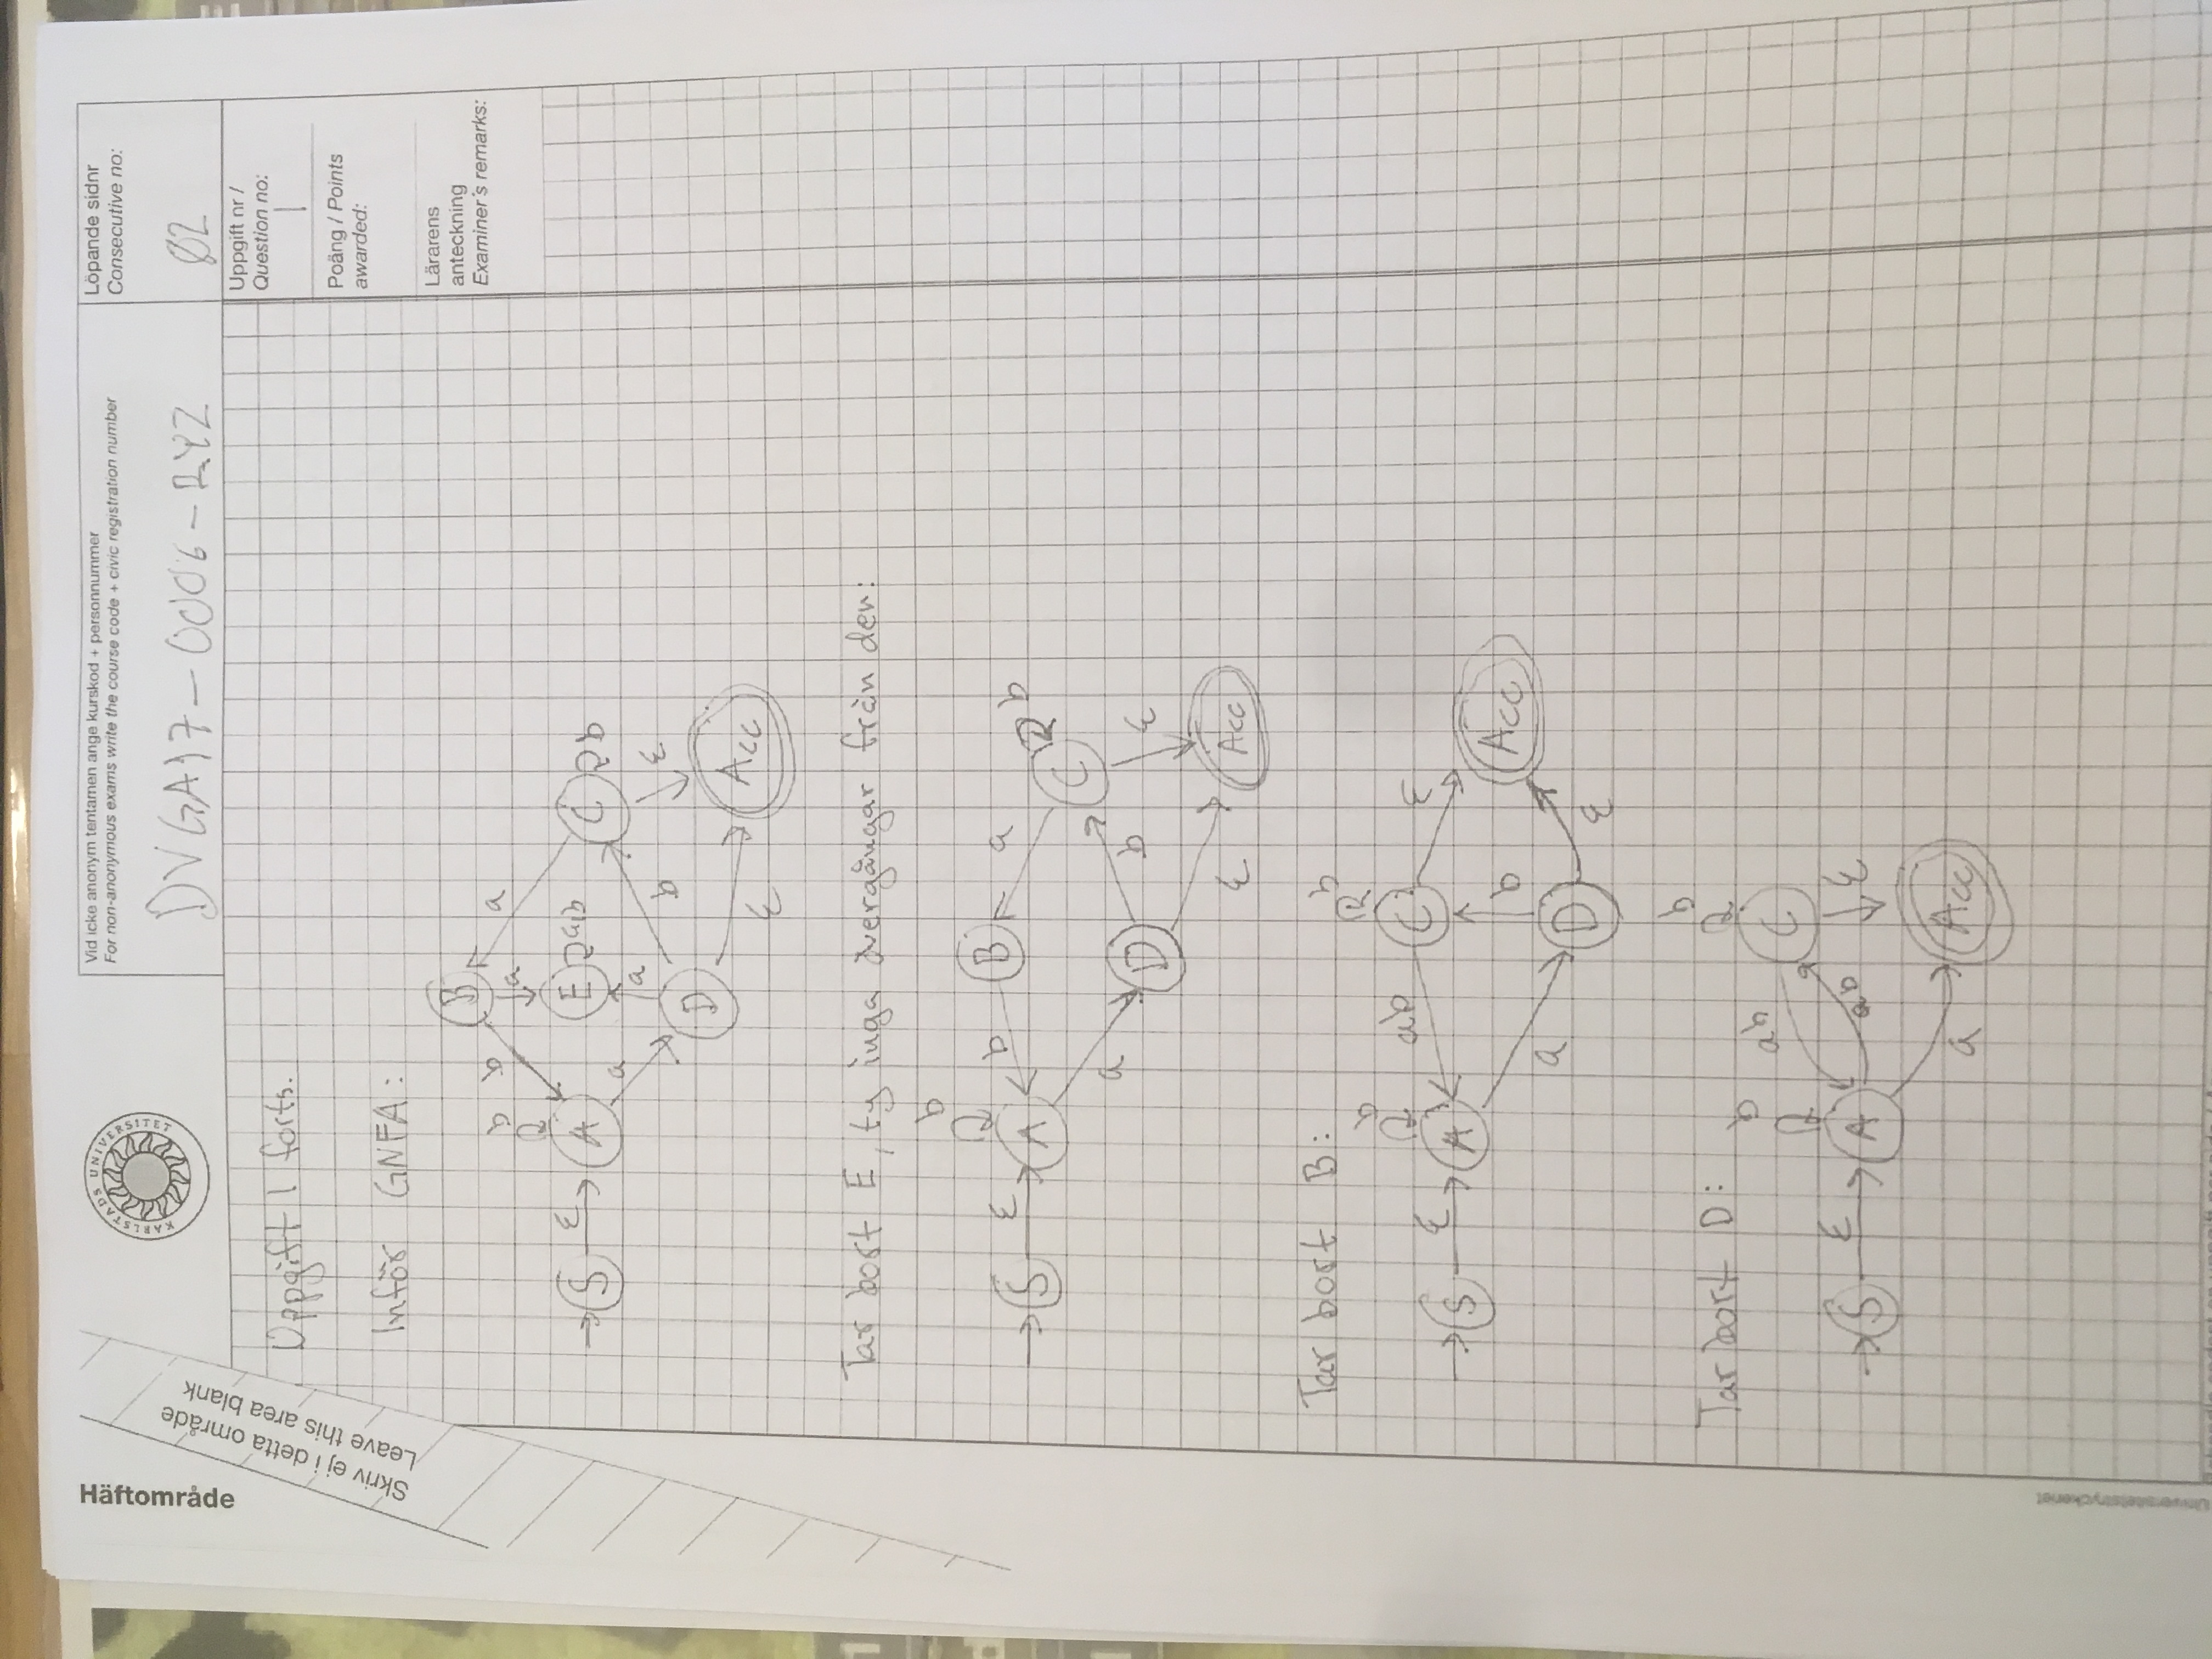 Häftområde
Skriv ej i detta område
Leave this area blank
KARLSTADS UNIVERSITET
Vid icke anonym tentamen ange kurskod + personnummer
For non-anonymous exams write the course code + civic registration number
DVGA17-0006-RYZ
Löpande sidnr
Consecutive no:
02
Uppgift nr /
Question no:
1
Poäng / Points
awarded:
Lärarens
anteckning
Examiner's remarks:
Uppgift 1 forts.
Inför GNFA:
B
b b a a
S ε A E a,b C b
a a b ε
D ε Acc
Tar bort E, ty inga övergångar från den:
b
S ε A b B a C b
a D b ε
ε Acc
Tar bort B:
b b
S ε A ab C ε
b Acc
a D ε
Tar bort D:
b b
ab C
S ε A ab ε
a Acc
Universitetstryckeriet